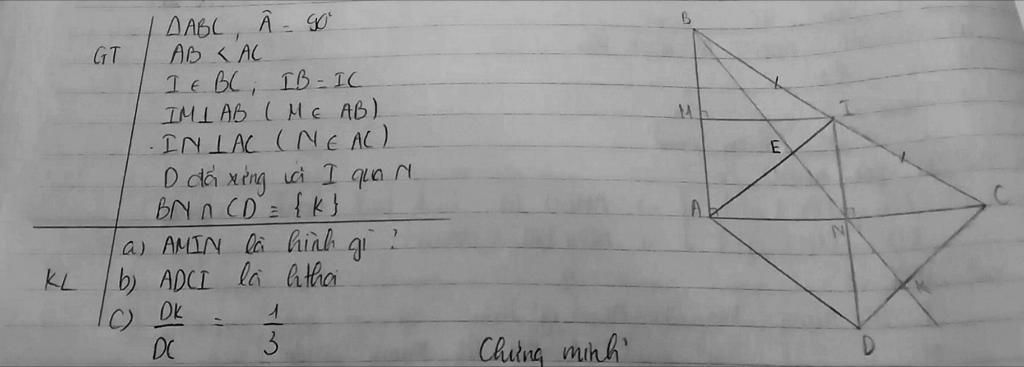 ΔABC, Â = 90°
GT
AB < AC
I ∈ BC, IB = IC
IM⊥AB (M ∈ AB)
IN⊥AC (N ∈ AC)
D đối xứng với I qua N
BN ∩ CD ≡ {K}
a) AMIN là hình gì?
KL
b) ADCI là hthoi
c) DK/DC = 1/3
Chứng minh
B
M
I
E
A
N
C
K
D